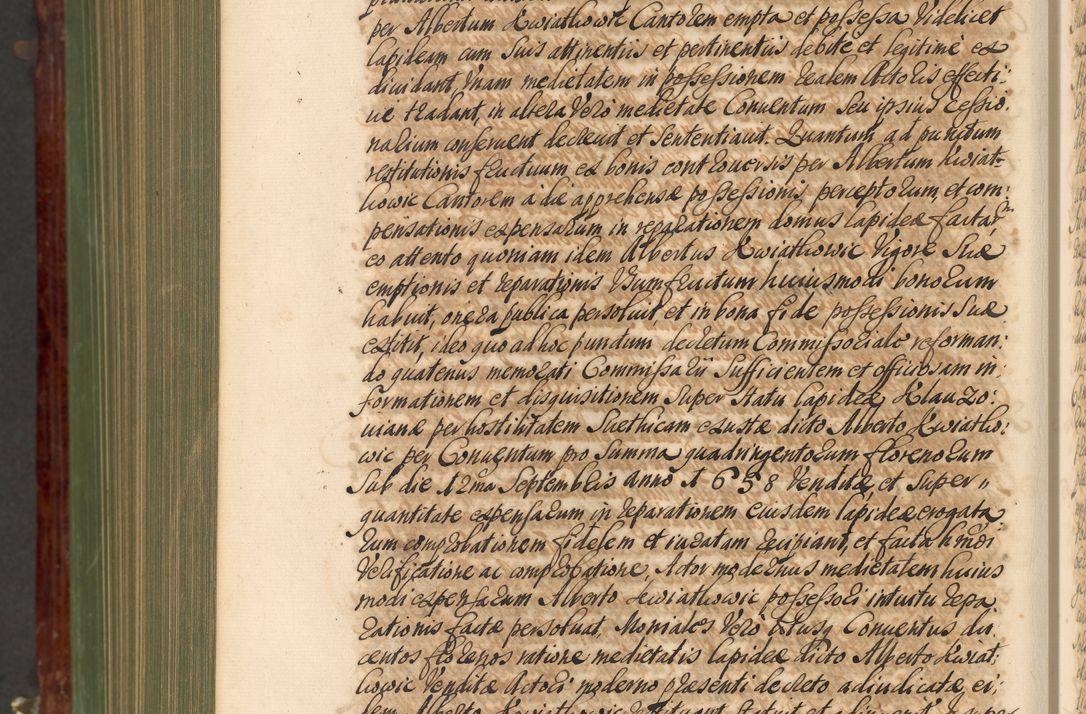 per Albertum Kwiatkowic Cantorem empta et possessa Videlicet
lapideam cum suis attinentiis et pertinentiis debite et legitime ex
dividant, Unam medietatem in possessionem realem Actoris effecti:
ue tradant, in altera Vero medietate Conuentum seu ipsius cessio:
narium conseruent decreuit et sententiauit. Quantum ad punctum
restitutionis fructuum ex bonis controuersis per Albertum Kwiat:
kowic Cantorem a die apprehensæ possessionis perceptorum, et com:
pensationis expensarum in reparationem domus lapideæ factar
eo attento quoniam idem Albertus Kwiatkowic Vigore Suæ
emptionis et reparationis Usumfructum huiusmodi bonorum
habuit, onera publica persoluit, et in bona fide possessionis suæ
extitit, ideo quo ad hoc punctum decretum Commissoriale reforman:
do quatenus memorati Commissarii Sufficientem et officiosam in:
formationem et disquisitionem super Statu lapideæ Klauzo:
uianæ per hostilitatem Suethicam exustæ dicto Alberto Kwiatko:
wic per Conuentum pro Summa quadringentorum florenorum
Sub die 12ma Septembris anno 1658 Venditæ, et super„
quantitate expensarum in reparationem eiusdem lapideæ erogata
rum comprobationem fidelem et iuratam recipiant, et facta hmoi
Verificatione ac comprobatione, Actor modernus medietatem huius
modi expensarum Alberto Kwiatkowic possessori intuitu repa
rationis factæ persoluat, Moniales Vero illiusq Conuentus du
centos florenos ratione medietatis lapideæ dicto Alberto Kwiat:
kowic Venditæ Actori moderno præsenti decreto adiudicatæ, ei:
dem Alberto Kwiatkowic restituant statuit et